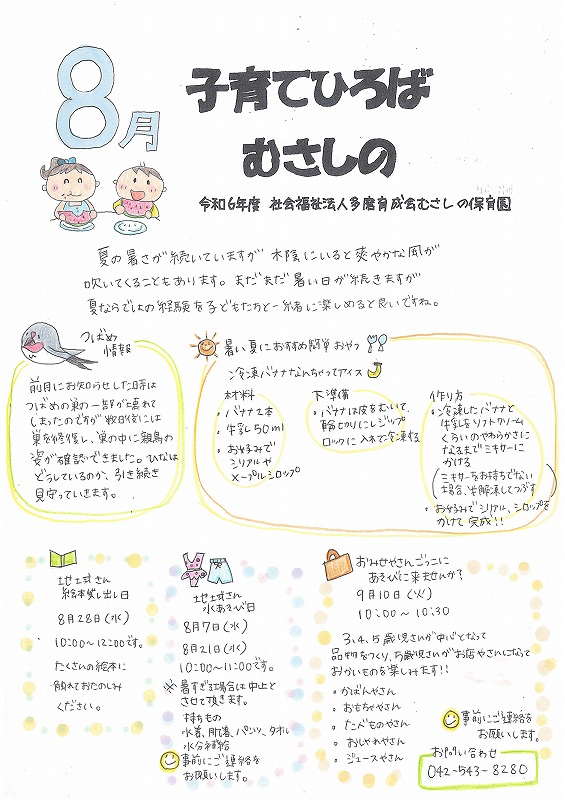 8月
子育てひろば
むさしの
令和6年度 社会福祉法人多磨育成会むさしの保育園
夏の暑さが続いていますが 木陰にいると爽やかな風が
吹いてくることもあります。まだまだ暑い日が続きますが
夏ならではの経験を子どもたちと一緒に楽しめると良いですね。
つばめ
情報
前月にお知らせした時は
つばめの巣の一部が壊れて
しまったのですが数日後には
巣を修復し、巣の中に親鳥の
姿が確認できました。ひなは
どうしているのか、引き続き
見守っていきます。
暑い夏におすすめ簡単おやつ
冷凍バナナなんちゃってアイス
材料
・バナナ2本
・牛乳50ml
・お好みで
シリアルや
メープルシロップ
下準備
・バナナは皮をむいて、
輪切りにしジップ
ロックに入れて冷凍する
作り方
・冷凍したバナナと
牛乳をソフトクリーム
くらいのやわらかさに
なるまでミキサーに
かける
(ミキサーをお持ちでない
場合、半解凍してつぶす)
・お好みでシリアル、シロップを
かけて完成!!
地域さん
絵本貸し出し日
8月28日(水)
10:00~12:00です。
たくさんの絵本に
触れておたのしみ
ください。
地域さん
水あそび日
8月7日(水)
8月21日(水)
10:00~11:00です。
※暑すぎる場合は中止と
させて頂きます。
持ちもの
水着、肌着、パンツ、タオル
水分補給
事前にご連絡を
お願いします。
おみせやさんごっこに
あそびに来ませんか?
9月10日(火)
10:00~10:30
3、4、5歳児さんが中心となって
品物をつくり、5歳児さんがお店やさんになって
おかいものを楽しみます!!
・かばんやさん
・おもちゃやさん
・たべものやさん
・おしゃれやさん
・ジュースやさん
事前にご連絡を
お願いします。
お問い合わせ
042-543-8280